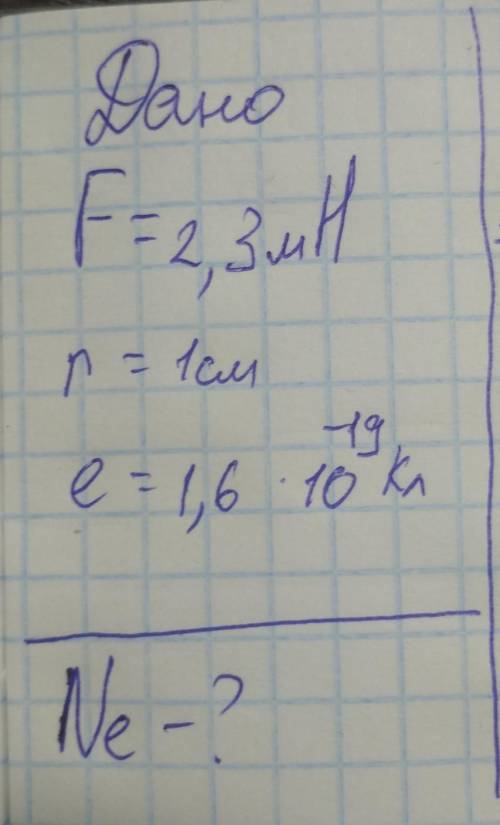 Дано
F = 2,3 мН
r = 1 см
e = 1,6 · 10⁻¹⁹ Кл
Ne - ?